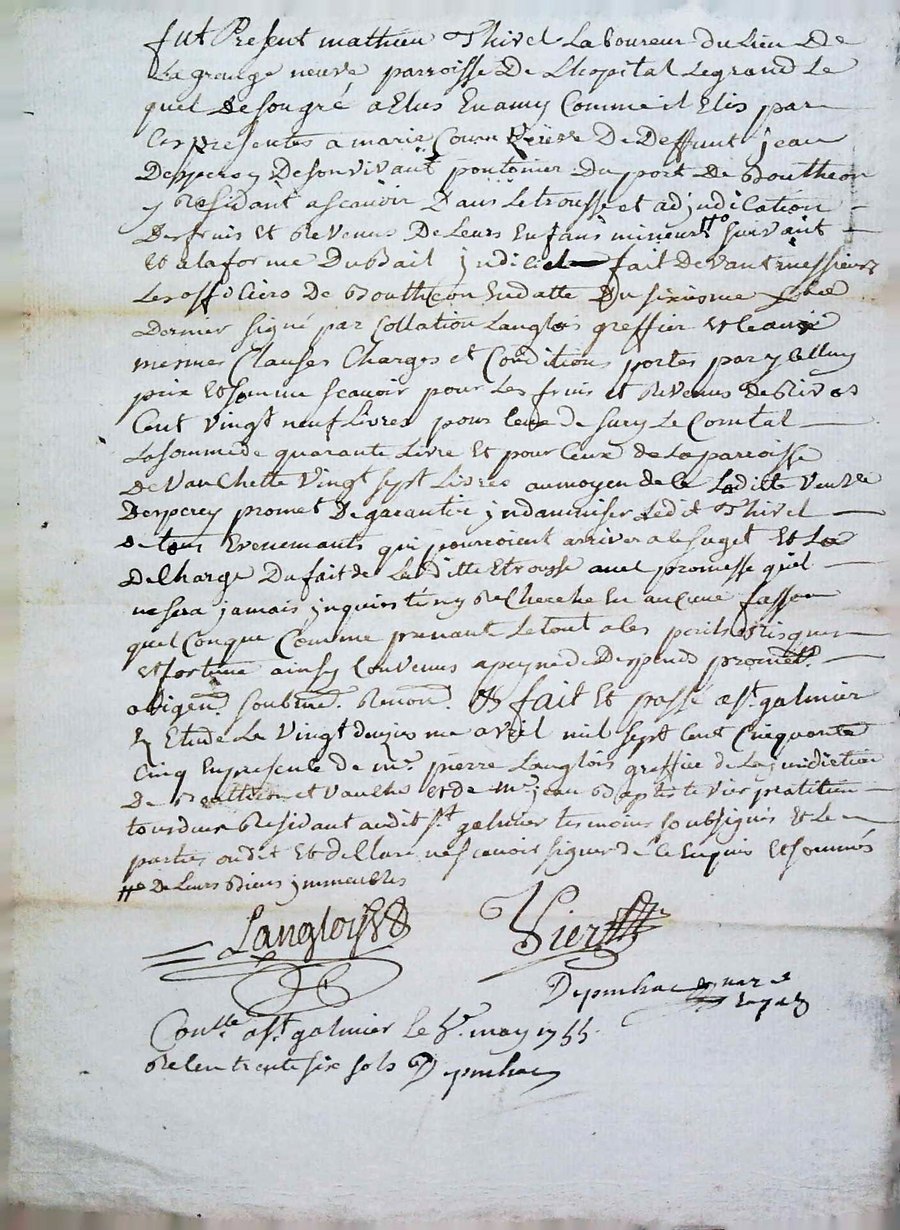 fut Present mathieu Thivel Laboureur du Lieu De
La grange neuve parroisse De Lhopital Legrand Le
quel De son gré a Elus En amy Comme il Elis par
Les presentes a marie Veusve De Deffunt jean
Desperey De son vivant pontonier Du port De Boutheon
y Residant ascavoir Dans Letrousse et adjudication
Des fruis et Revenus De Leurs Enfans mineurs # suivant
Et a la forme Du Bail judiciel fait Devant messieurs
Les officiers De Boutheon En datte Du sixiesme
Dernier signé par Collation Langlois greffier et aux
mesmes Clauses Charges et Conditions portes par yCelluy
prix Et somme scavoir pour Les fruis et Revenus De Rivas
Cent Vingt neuf Livres pour Ceux de Sury Le Comtal
La somme de quarante Livre Et pour Ceux de La parroisse
De Vauchette Vingt sept Livres au moyen de Ce Laditte Veusve
Desperey promet De garantir jndamniser Ledit Thivel
de tous Evenements qui pourroient arriver a Ce suget Et Le
deCharge Du fait de Laditte Etrousse avec promesse quil
ne sera jamais jnquieté ny ReCherché En aucune fasson
quelConque Comme prenant Le tout a Ces perils risques
et fortune ainsy Convenus a peyne de Despends promett.
obligen. soubme. Renon. fait Et passé a St. galmier
En Etude Le Vingt deuxiesme avril mil sept Cent Cinquante
Cinq En presence de me. pierre Langlois greffier de La juridiction
De Boutheon et Vauches et de me. jean Baptiste Vier pratitien
tous deux Residant audit St. galmier tesmoins soubsignés Et Le
parties ont dit Et desClare ne scavoir signer de Ce Enquis Et sommés
# De Leurs Biens jmmeubles
Langlois Vier
Depinhac
Conllé a St. galmier le 5e. may 1755
Releu trente six sols Depinhac